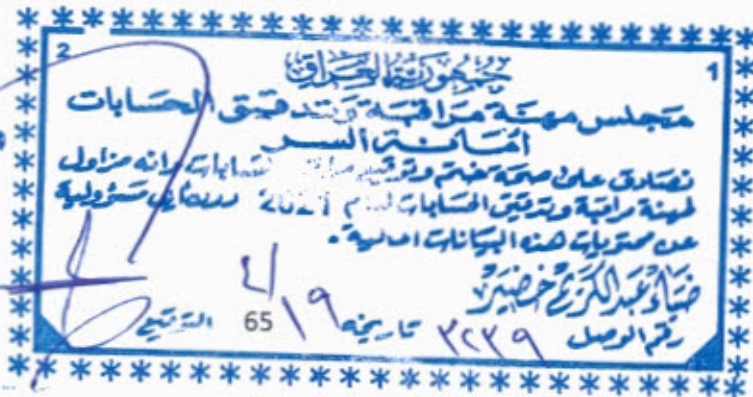 2
1
جمهورية العراق
مجلس مهنة مراقبة وتدقيق الحسابات
أمانة السر
نصادق على صحة ختم وتوقيع مراقب الحسابات وانه مزاول
لمهنة مراقبة وتدقيق الحسابات لعام 2021 دون أي مسؤولية
عن محتويات هذه البيانات المالية.
ضياء عبد الكريم خضير
رقم الوصل ٣٢٣٩ تاريخه ١٩/٤ التوقيع
65